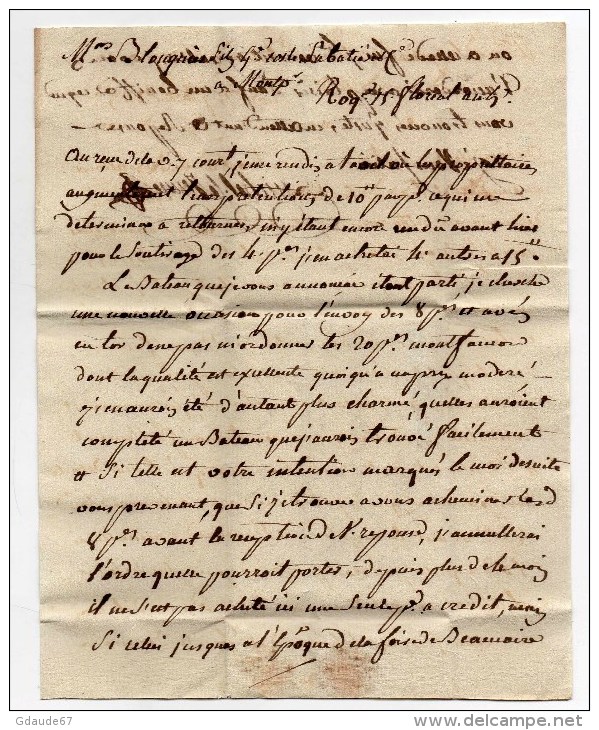 Mrs Blouquier fils
a Montp.
Roq. 15 floreal an
augmentant leurs pretentions de 10 par p. ce qui me
determina a retourner, m'y étant encore rendu avant hier
pour le soutirage des 4 p. j'en achetai 4 autres a 15
Le Bateau que je vous annoncée étant parti je cherche
une nouvelle occasion pour l'envoy des 8 p. et avés
eu tor de ne pas m'ordonner les 20 p. montfaucon
dont la qualité est exellente quoiqu'a un prix moderé
j'en aurois été d'autant plus charmé, quelles auroient
completé un Bateau que j'aurois trouvé facilement
Si telle est votre intention marqués le moi desuite
vous prevenant, que Si je trouve a vous acheminer les d
8 p. avant la reception de V. reponse, j'annullerai
l'ordre quelle pourroit porter, depuis plus de le mois
il ne s'est pas acheté ici une Seule p. a credit, mais
Si celui jusques a l'Epoque de la foire de Beaucaire
Gdaude67